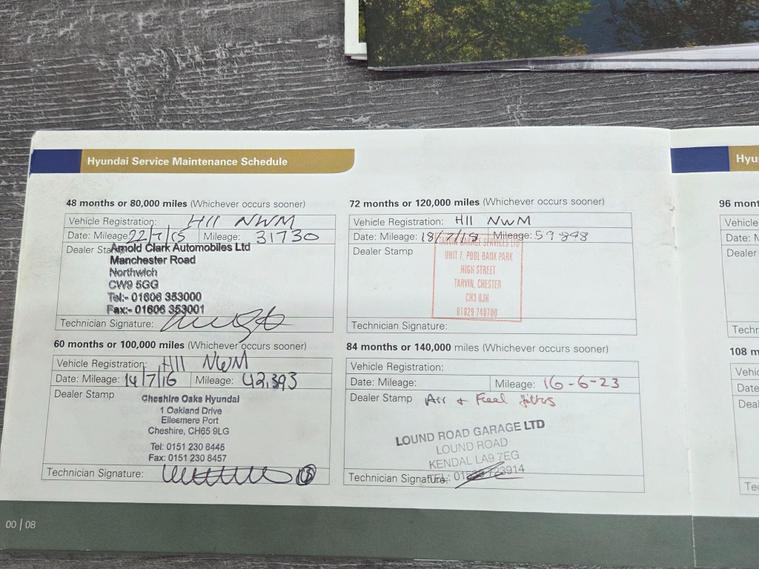 Hyundai Service Maintenance Schedule
48 months or 80,000 miles (Whichever occurs sooner)
Vehicle Registration: H11 NWM
Date: Mileage 22/7/15 Mileage: 31730
Dealer
Arnold Clark Automobiles Ltd
Manchester Road
Northwich
CW9 5GG
Tel:- 01606 353000
Fax:- 01606 353001
Technician Signature:
60 months or 100,000 miles (Whichever occurs sooner)
Vehicle Registration: H11 NWM
Date: Mileage: 14/7/16 Mileage: 42,393
Dealer Stamp
Cheshire Oaks Hyundai
1 Oakland Drive
Ellesmere Port
Cheshire, CH65 9LG
Tel: 0151 230 8446
Fax: 0151 230 8457
Technician Signature:
72 months or 120,000 miles (Whichever occurs sooner)
Vehicle Registration: H11 NWM
Date: Mileage: 18/7/18 Mileage: 59848
Dealer Stamp
UNIT 7, POOL BANK PARK
HIGH STREET
TARVIN, CHESTER
CH3 8JH
01829 740700
Technician Signature:
84 months or 140,000 miles (Whichever occurs sooner)
Vehicle Registration:
Date: Mileage: Mileage: 16-6-23
Dealer Stamp Air + Fuel filters
LOUND ROAD GARAGE LTD
LOUND ROAD
KENDAL LA9 7EG
Technician Signature:
00 | 08
Hyu
96 mont
Vehicle
Date: M
Deale
Techn
108 m
Vehic
Date
Deal
Te